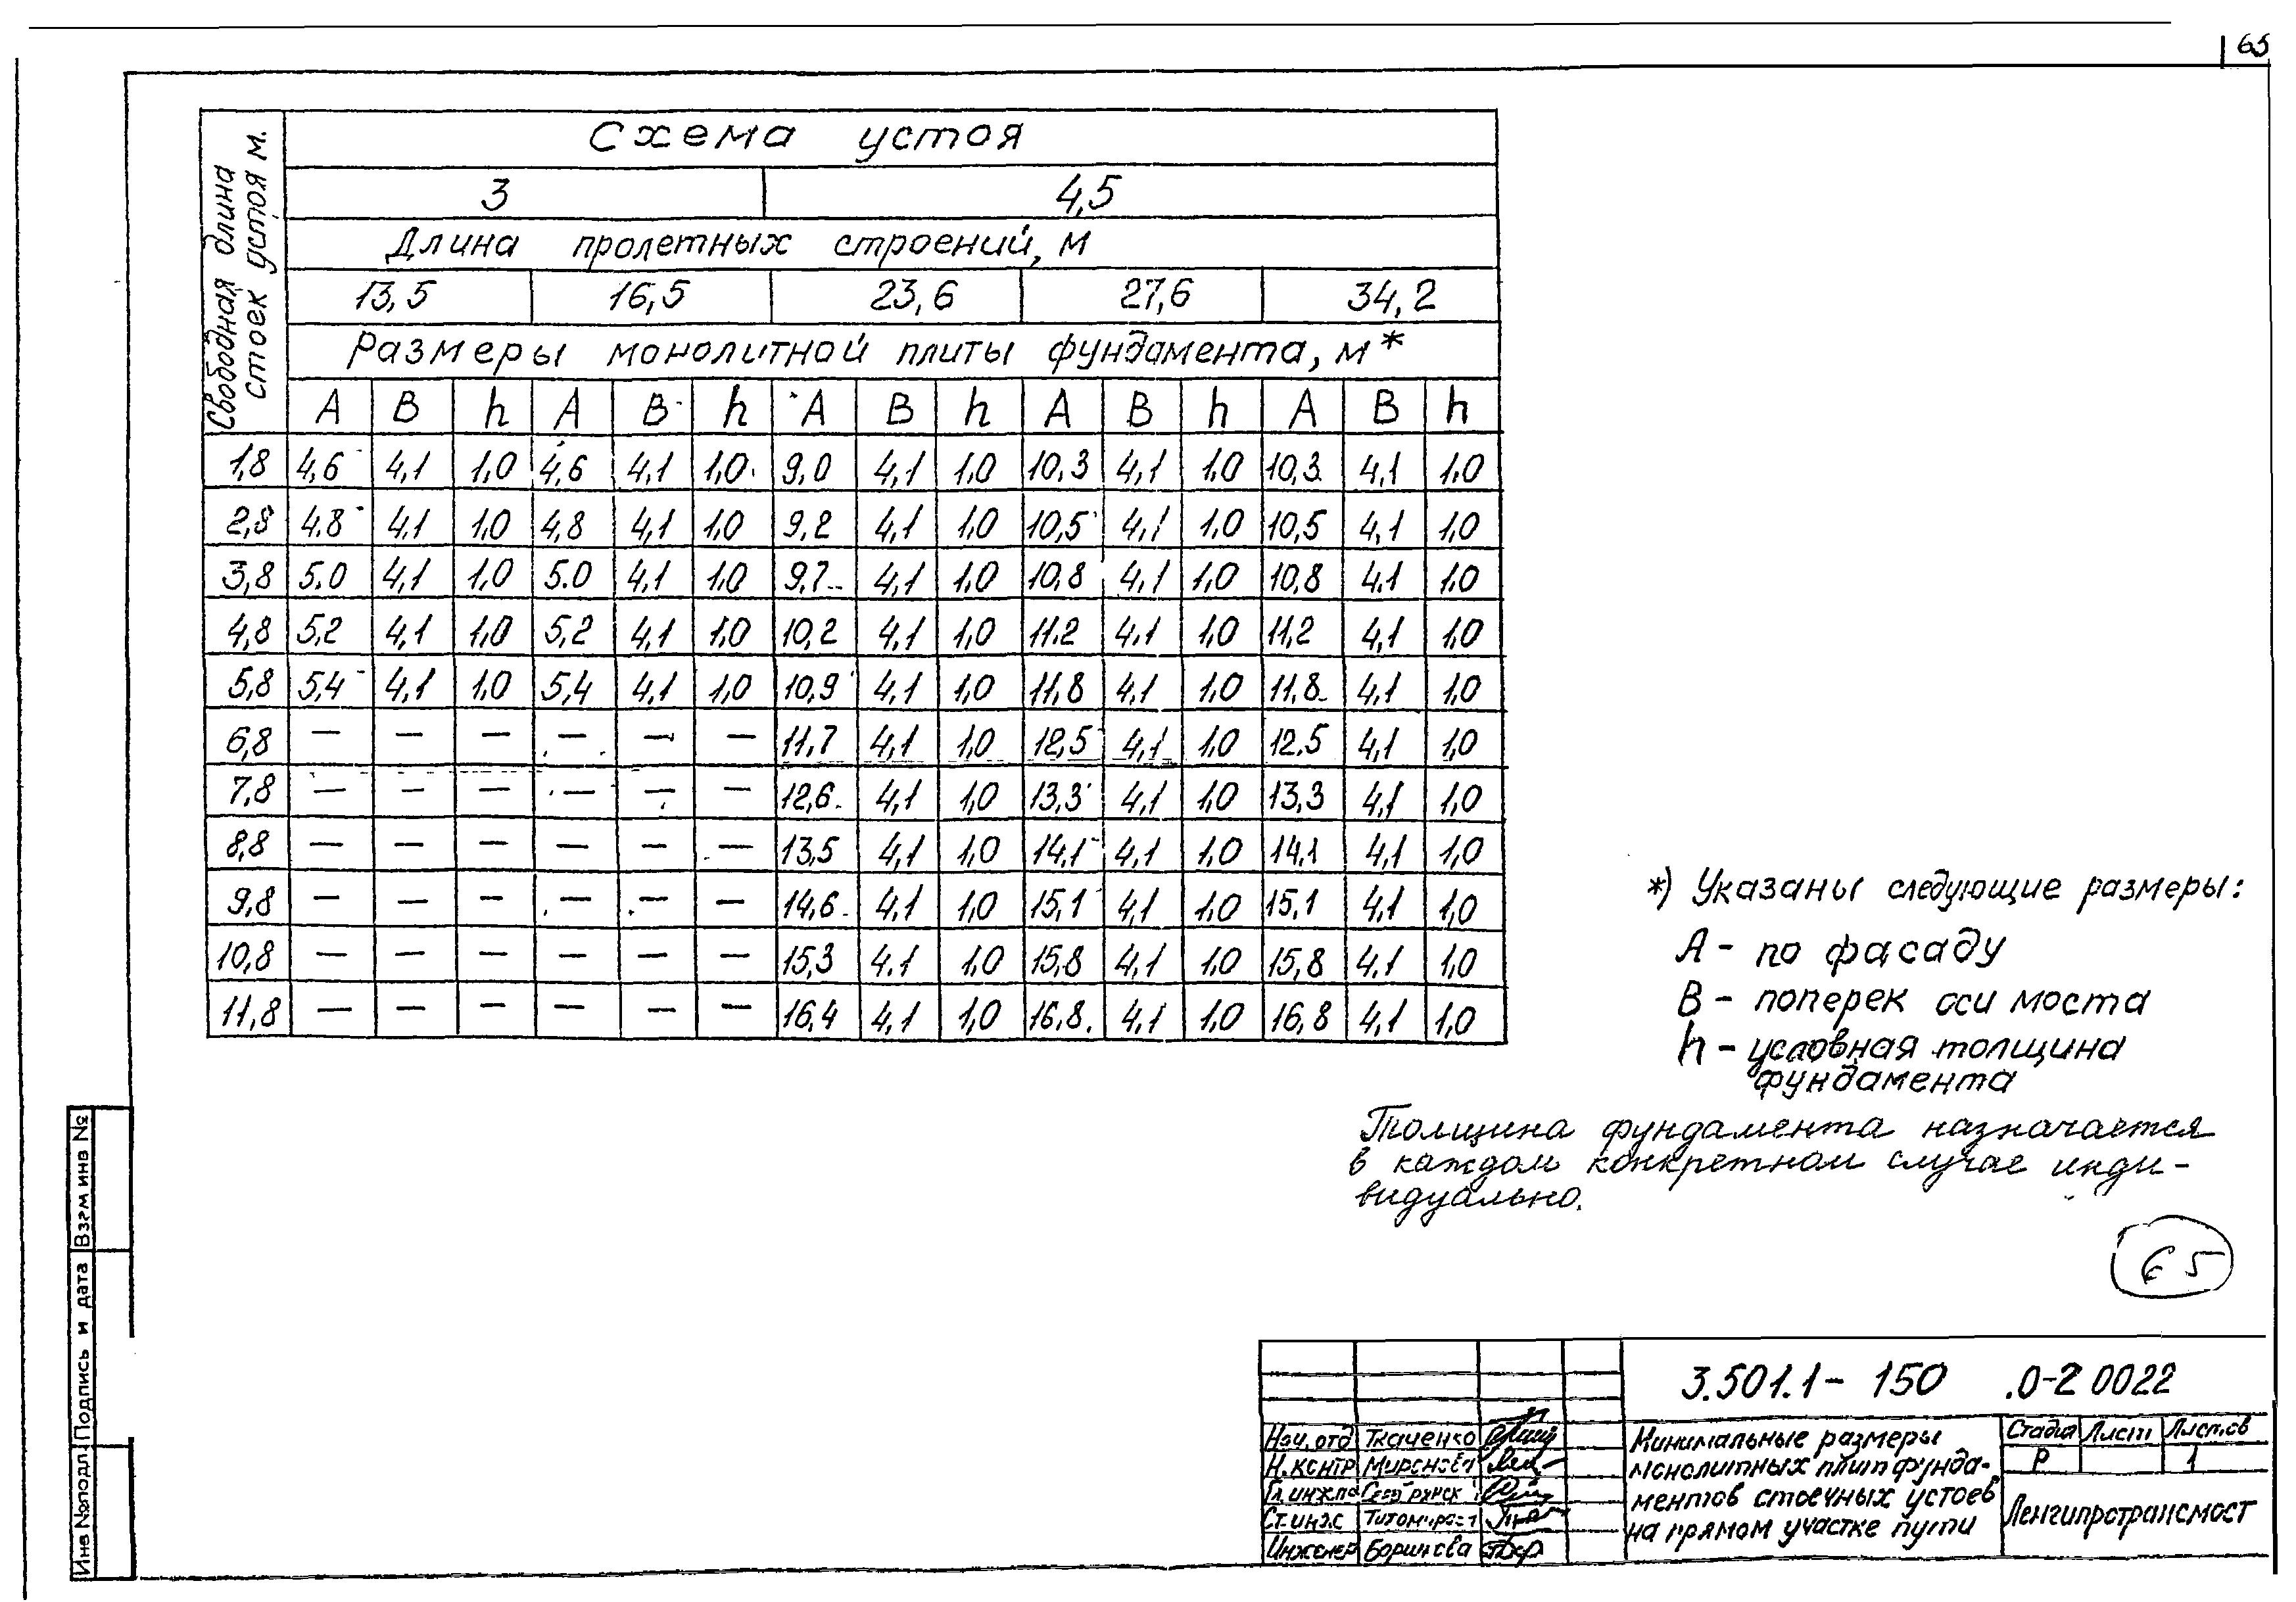 65
Свободная длина
стоек устоя м.
Схема устоя
3 4,5
Длина пролетных строений, м
13,5 16,5 23,6 27,6 34,2
Размеры монолитной плиты фундамента, м*
A B h A B h A B h A B h A B h
1,8 4,6 4,1 1,0 4,6 4,1 1,0 9,0 4,1 1,0 10,3 4,1 1,0 10,3 4,1 1,0
2,8 4.8 4.1 1,0 4,8 4,1 1,0 9,2 4,1 1,0 10,5 4,1 1,0 10,5 4,1 1,0
3,8 5.0 4,1 1,0 5.0 4,1 1,0 9,7 4,1 1,0 10,8 4,1 1,0 10,8 4.1 1,0
4,8 5,2 4,1 1,0 5,2 4,1 1,0 10,2 4,1 1,0 11.2 4,1 1,0 11,2 4,1 1,0
5,8 5,4 4,1 1,0 5,4 4,1 1,0 10,9 4,1 1,0 11,8 4,1 1,0 11,8 4,1 1,0
6,8 — — — — — — 11,7 4,1 1,0 12,5 4,1 1,0 12.5 4,1 1,0
7,8 — — — — — — 12,6 4,1 1,0 13,3 4,1 1,0 13,3 4,1 1,0
8,8 — — — — — — 13,5 4,1 1,0 14,1 4,1 1,0 14,1 4,1 1,0
9,8 — — — — — — 14,6 4,1 1,0 15,1 4,1 1,0 15,1 4,1 1,0
10,8 — — — — — — 15,3 4.1 1,0 15,8 4,1 1,0 15,8 4.1 1,0
11,8 — — — — — — 16,4 4,1 1,0 16,8 4,1 1,0 16,8 4,1 1,0
*) Указаны следующие размеры:
A - по фасаду
B - поперек оси моста
h - условная толщина
фундамента
Толщина фундамента назначается
в каждом конкретном случае инди-
видуально.
65
3.501.1- 150 .0-2 0022
Нач. отд Ткаченко
Н. контр Миронова
Гл. инж.пр
Ст. инж
Инженер
Минимальные размеры
монолитных плит фунда-
ментов стоечных устоев
на прямом участке пути
Стадия Лист Листов
Р 1
Ленгипротрансмост
Взам инв №
Подпись и дата
Инв № подл